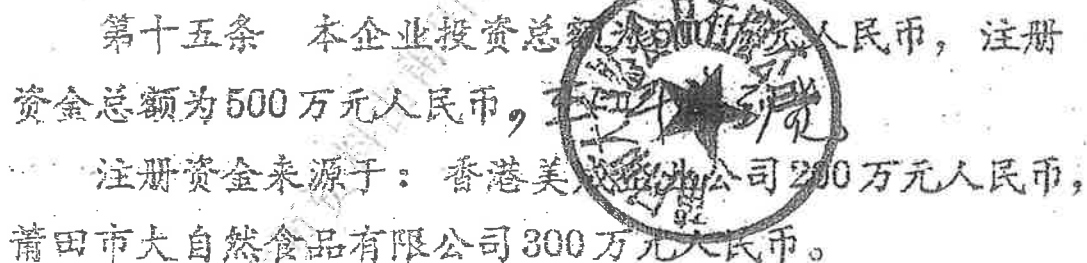 第十五条 本企业投资总额为500万元人民币，注册
资金总额为500万元人民币，
注册资金来源于：香港美 公司200万元人民币，
莆田市大自然食品有限公司300万元人民币。